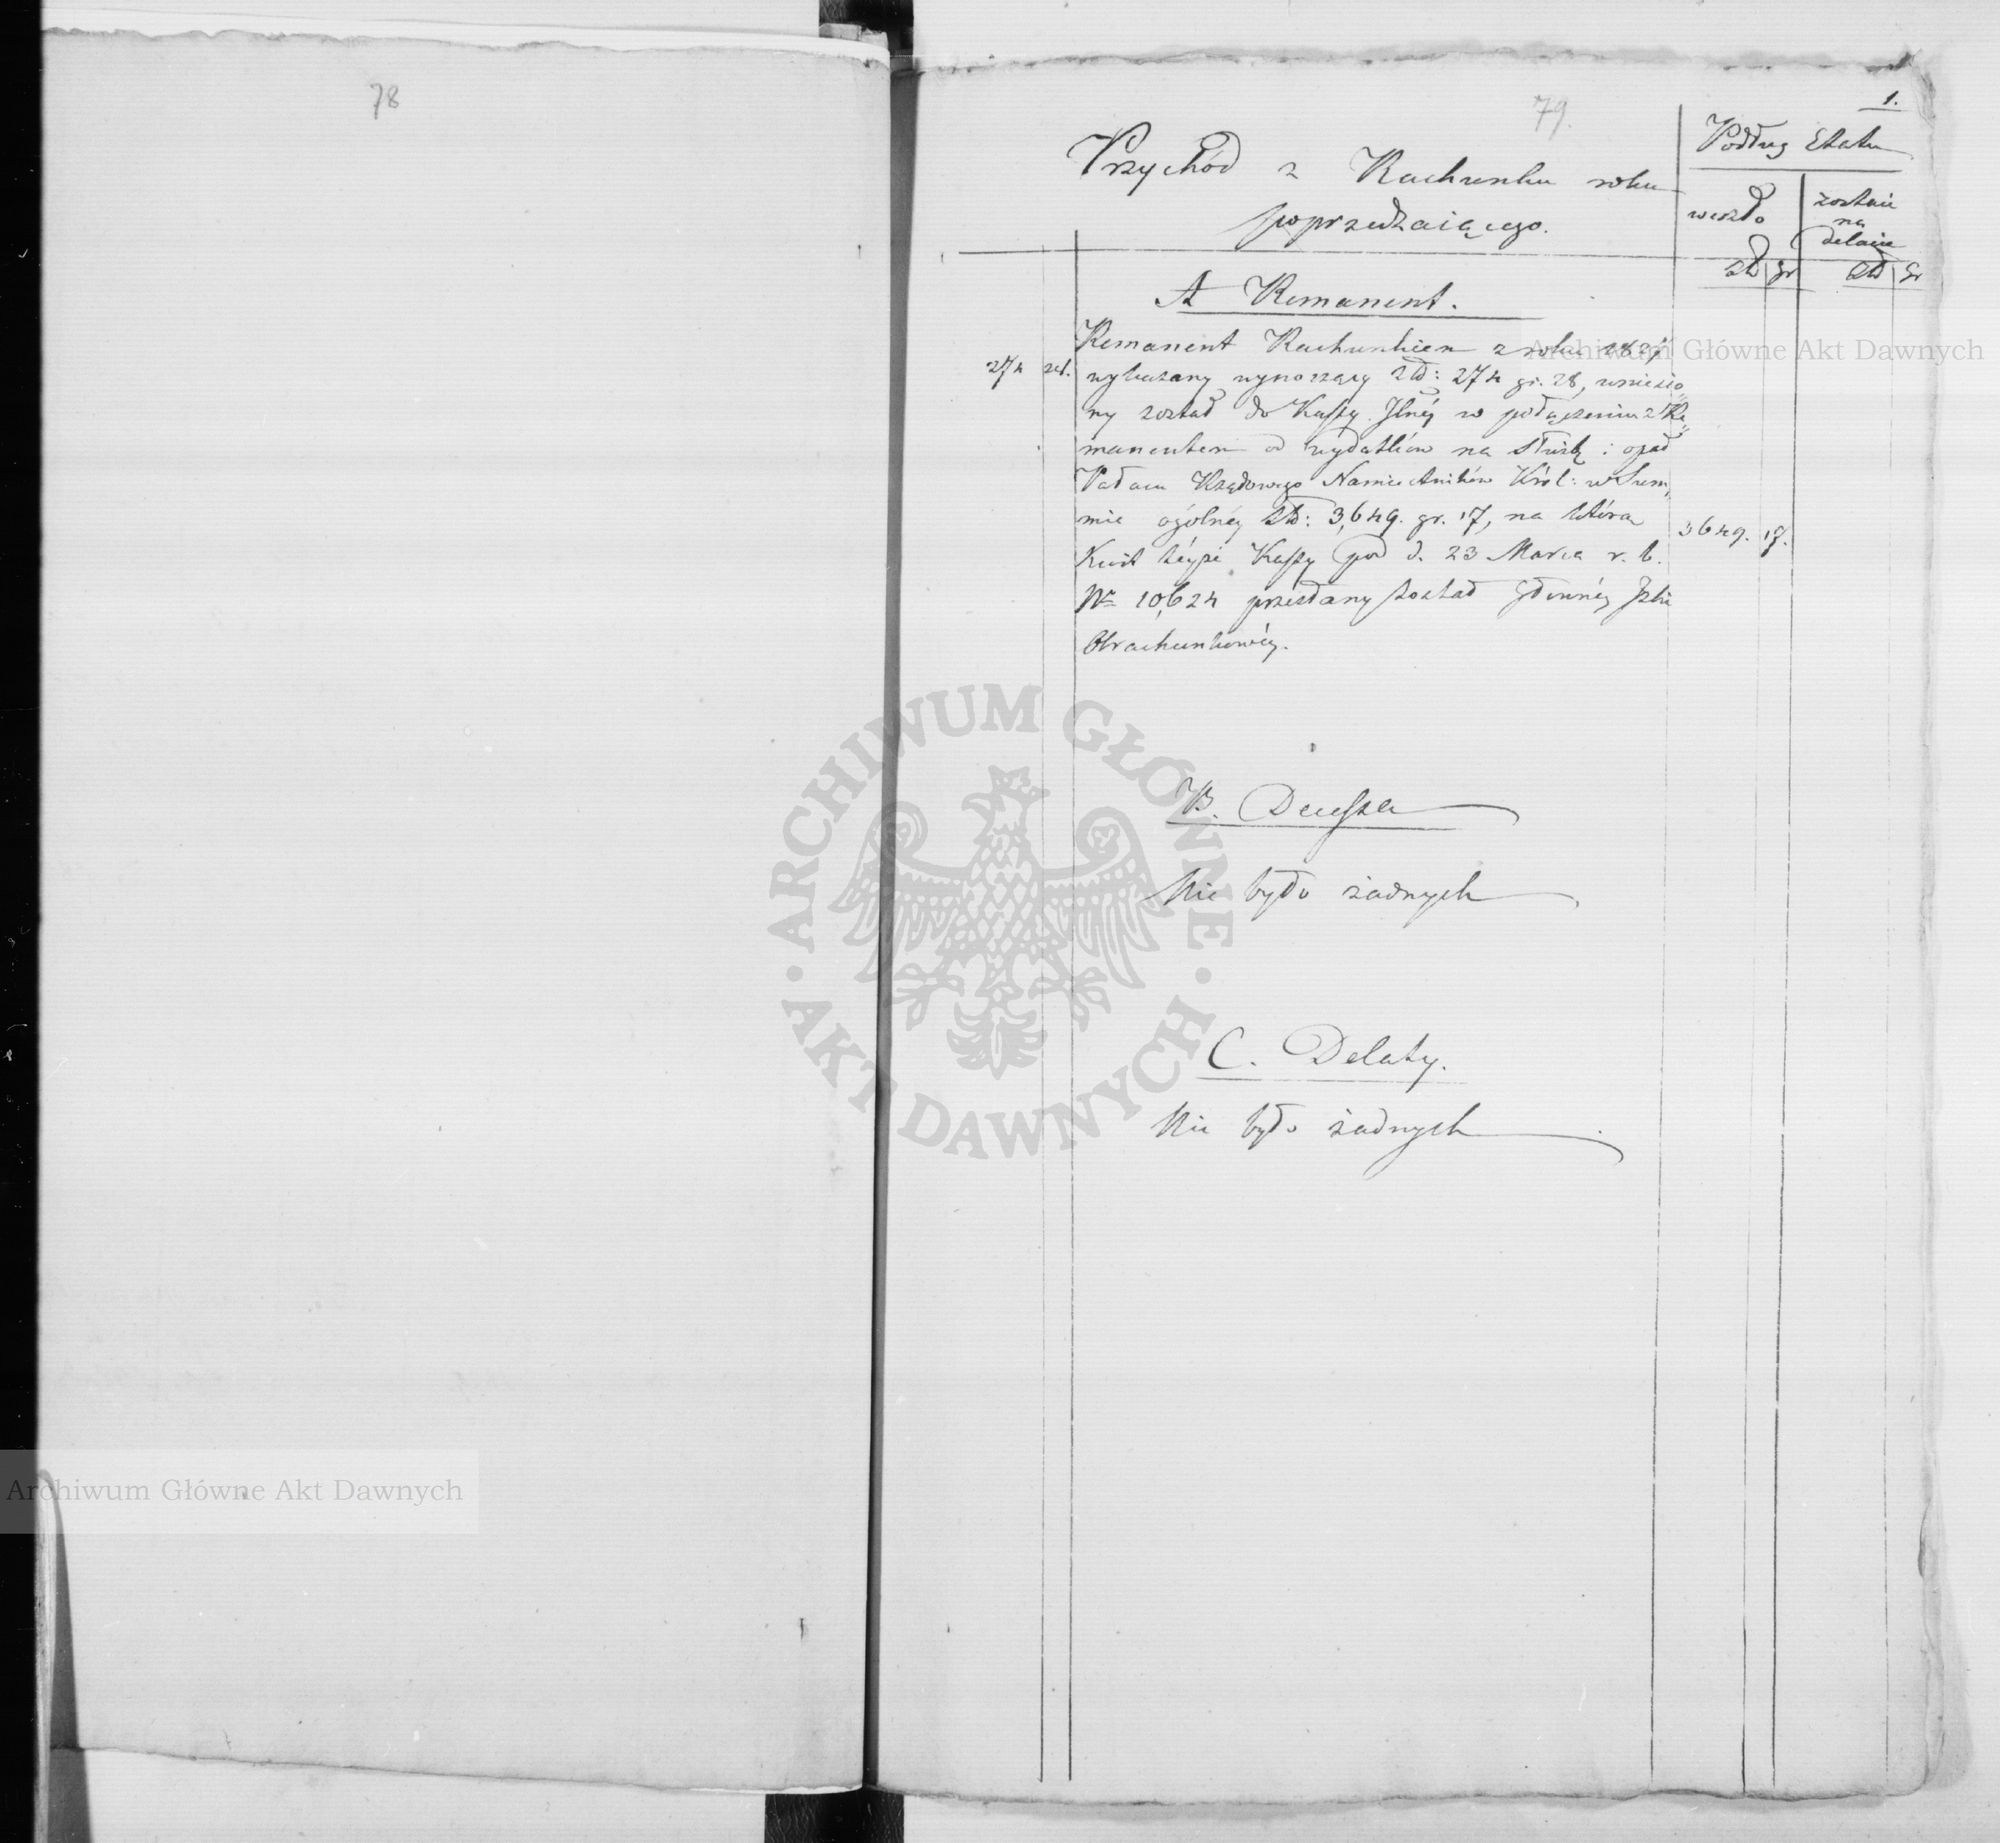 78
79.
1.
Przychód z Rachunku roku
poprzedzaiącego.
Podług Etatu
weszło
zostaie
na
delacie
zł gr
zł gr
A Remanent.
274 28.
Remanent Rachunkiem z roku
wykazany wynoszący Zł: 274 gr. 28, wniesio=
ny został do Kassy Jlnéj w połączeniu z Re=
manentem od wydatków na służbę i opał
Pałacu Rządowego Namiestników Król: w Sum=
mie ogólnéy Zł: 3,649. gr. 17, na którą
Kwit téyże Kassy pod d. 23 Marca r. b.
Nr 10,624 przesłany został Głównéy Izbie
Obrachunkowéy.
3649. 17.
B. Defekta
Nie było żadnych
C. Delaty.
Nie było żadnych
ARCHIWUM GŁÓWNE AKT DAWNYCH
Archiwum Główne Akt Dawnych
Archiwum Główne Akt Dawnych